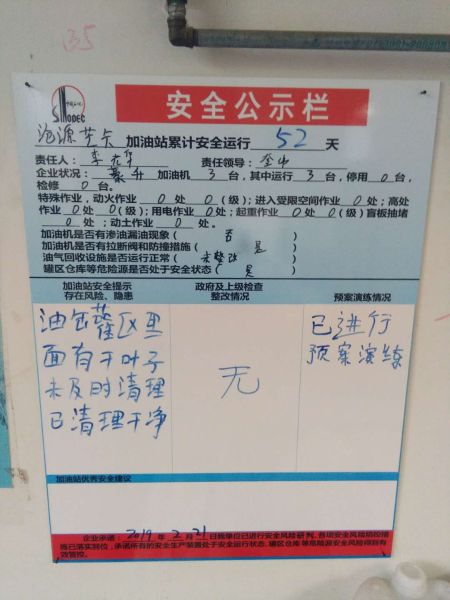 135
SINODEC
安全公示栏
沧源芒卡 加油站累计安全运行 52 天
责任人： 责任领导：
企业状况： 加油机 3 台，其中运行 3 台，停用 0 台，
检修 0 台。
特殊作业，动火作业 0 处 0 (级)；进入受限空间作业 0 处；高处
作业 0 处 0 (级)；用电作业 0 处；起重作业 0 处 0 (级) 盲板抽堵
0 处；动土作业 0 处。
加油机是否有渗油漏油现象（ 否
加油机是否有拉断阀和防撞措施（ 是
油气回收设施是否运行正常（ 未整改
罐区仓库等危险源是否处于安全状态（ 是 ）
加油站安全提示
存在风险、隐患
政府及上级检查
整改情况
预案演练情况
油缶蓶区里
面有干叶子
未及时清理
已清理干净
无
已进行
预案演练
加油站优秀安全建议
企业承诺：2019年2月21日我单位已进行安全风险研判，各项安全风险防控措
施已落实到位，承诺所有的安全生产装置处于安全运行状态，罐区仓库等危险源安全风险得到有
效管控。